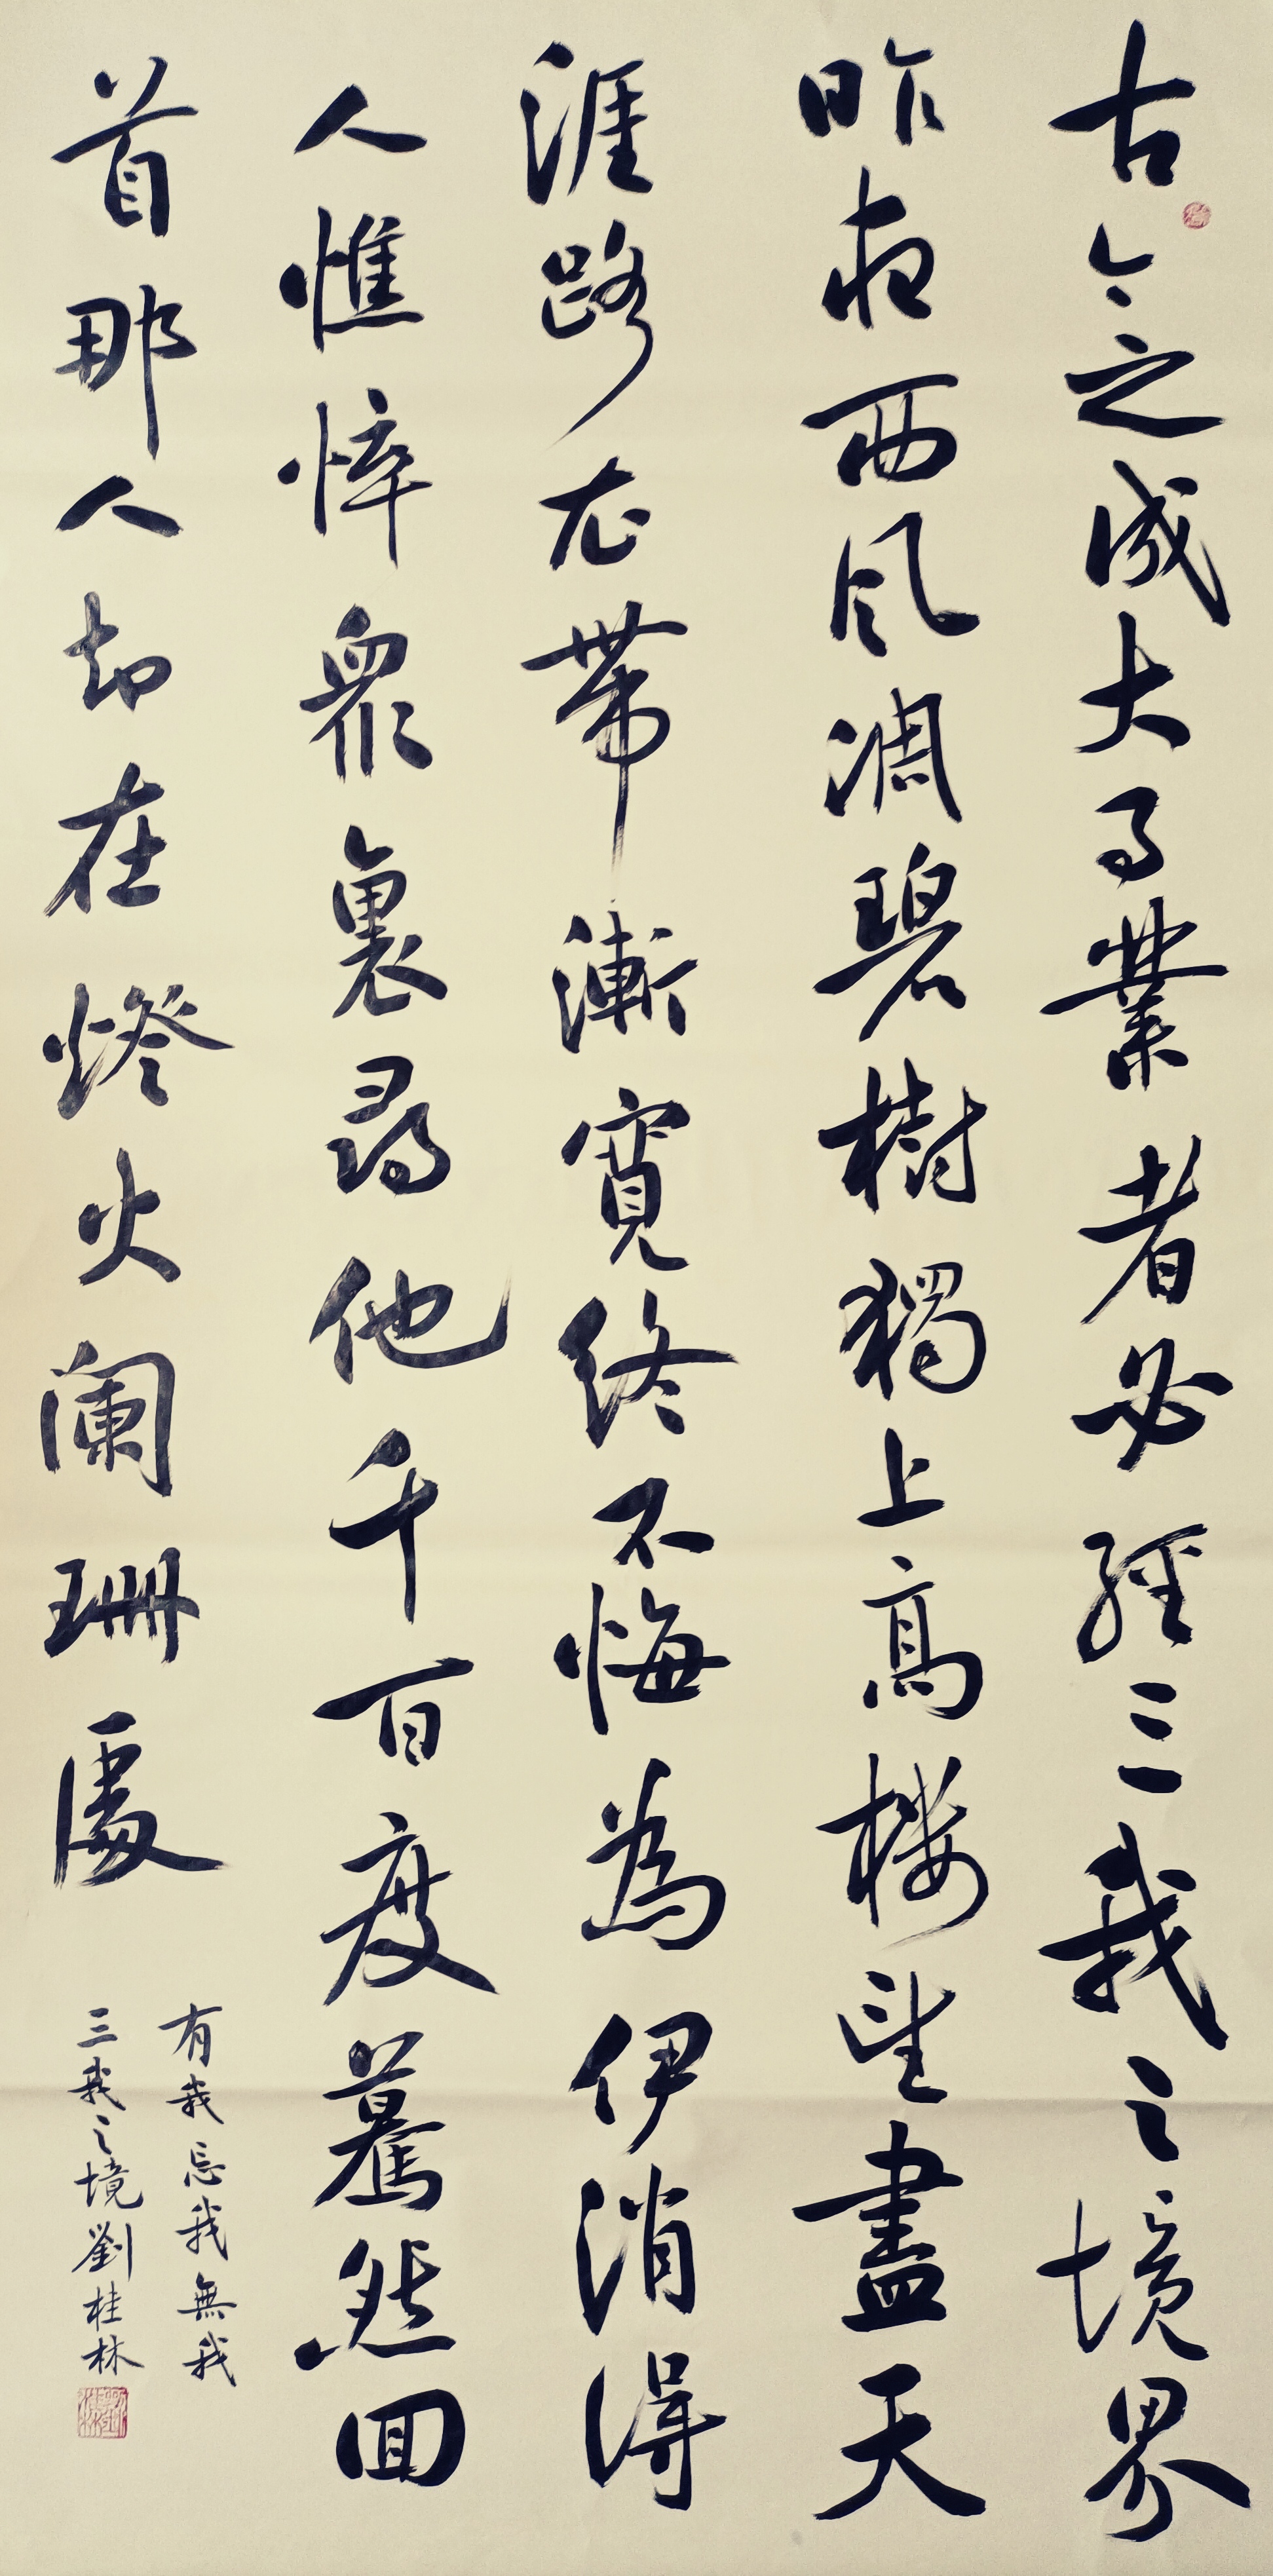 古今之成大事業者必經三我之境界
昨夜西风凋碧樹獨上高樓望盡天
涯路衣帶漸寬終不悔為伊消得
人憔悴衆裏尋他千百度驀然回
首那人却在燈火阑珊處
有我忘我無我
三我之境劉桂林